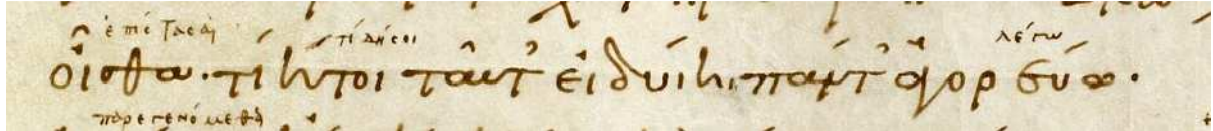 ἐπίστασαι τί δή σοι λέγω
οἶσθα· τί ἤ τοι ταῦτ' εἰδυίηι πάντ' ἀγορεύω·
παρεγενόμεθα